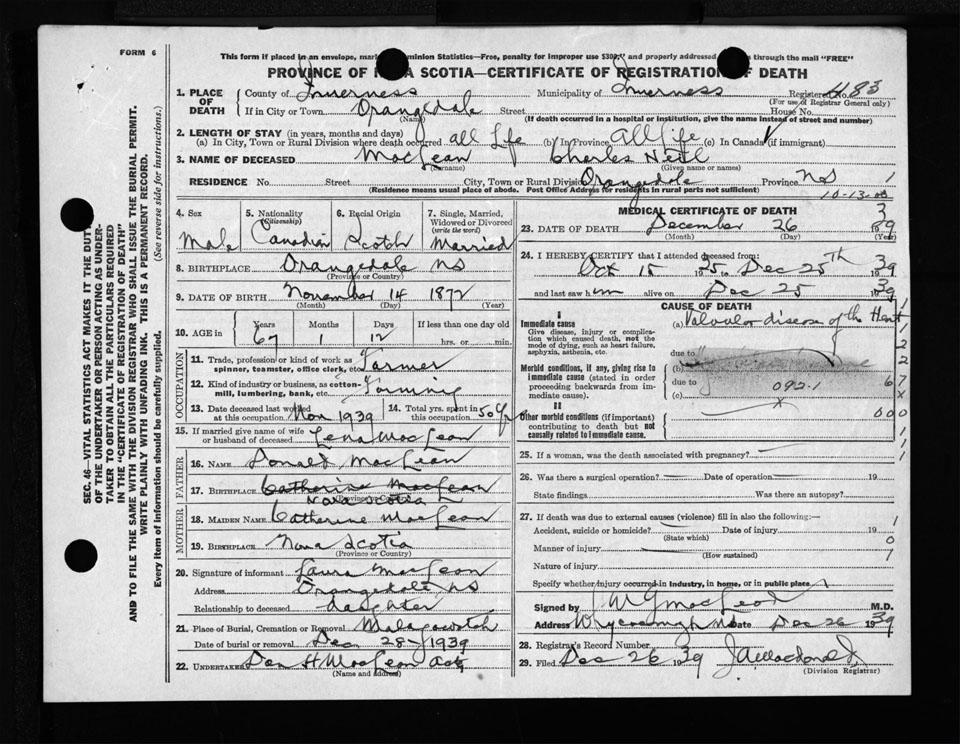 FORM 6
This form if placed in an envelope, mar Dominion Statistics—Free, penalty for improper use $300," and properly addressed through the mail "FREE"
PROVINCE OF N A SCOTIA—CERTIFICATE OF REGISTRATION OF DEATH
1. PLACE OF DEATH
County of Inverness Municipality of Inverness Registered No. 83
(For use of Registrar General only)
If in City or Town Orangedale Street House No.
(Name) (If death occurred in a hospital or institution, give the name instead of street and number)
2. LENGTH OF STAY (in years, months and days)
(a) In City, Town or Rural Division where death occurred all Life (b) In Province All Life (c) In Canada (if immigrant)
3. NAME OF DECEASED MacLean Charles Neil
(Surname) (Given name or names)
RESIDENCE No. Street City, Town or Rural Division Orangedale Province NS 1
(Residence means usual place of abode. Post Office Address for residents in rural parts not sufficient)
10-13-
4. Sex Male
5. Nationality (Citizenship) Canadian
6. Racial Origin Scotch
7. Single, Married, Widowed or Divorced (write the word) Married
8. BIRTHPLACE Orangedale NS
(Province or Country)
9. DATE OF BIRTH November 14 1872
(Month) (Day) (Year)
10. AGE in Years Months Days If less than one day old
67 1 12 hrs. or min.
OCCUPATION
11. Trade, profession or kind of work as spinner, teamster, office clerk, etc. Farmer
12. Kind of industry or business, as cotton-mill, lumbering, bank, etc. Farming
13. Date deceased last worked at this occupation Nov 1939
14. Total yrs. spent in this occupation 50 yr
15. If married give name of wife or husband of deceased Lena MacLean
FATHER
16. NAME Donald MacLean
17. BIRTHPLACE Catherine MacLean
Nova Scotia
MOTHER
18. MAIDEN NAME Catherine MacLean
19. BIRTHPLACE Nova Scotia
(Province or Country)
20. Signature of informant Laura MacLean
Address Orangedale, NS
Relationship to deceased daughter
21. Place of Burial, Cremation or Removal Malagawatch
Date of burial or removal Dec 28-1939
22. UNDERTAKER Dan H MacLean
(Name and address)
MEDICAL CERTIFICATE OF DEATH
23. DATE OF DEATH December 26 1939
(Month) (Day) (Year)
24. I HEREBY CERTIFY that I attended deceased from:
Oct 15 1935 to Dec 25th 1939
and last saw him alive on Dec 25 1939
CAUSE OF DEATH
I
Immediate cause
Give disease, injury or complication which caused death, not the mode of dying, such as heart failure, asphyxia, asthenia, etc.
(a) Valvular disease of the Heart
due to
(b)
Morbid conditions, if any, giving rise to immediate cause (stated in order proceeding backwards from immediate cause).
due to
092.1
(c)
II
Other morbid conditions (if important) contributing to death but not causally related to immediate cause.
25. If a woman, was the death associated with pregnancy?
26. Was there a surgical operation? Date of operation 19
State findings Was there an autopsy?
27. If death was due to external causes (violence) fill in also the following:—
Accident, suicide or homicide? Date of injury 19
(State which)
Manner of injury
(How sustained)
Nature of injury
Specify whether injury occurred in industry, in home, or in public place
Signed by MacLeod M.D.
Address Whycocomagh NS Date Dec 26 1939
28. Registrar's Record Number
29. Filed Dec 26 1939 J A MacDonald
(Division Registrar)
SEC. 46—VITAL STATISTICS ACT MAKES IT THE DUTY
OF THE UNDERTAKER OR PERSON ACTING AS UNDER-
TAKER TO OBTAIN ALL THE PARTICULARS REQUIRED
IN THE "CERTIFICATE OF REGISTRATION OF DEATH"
AND TO FILE THE SAME WITH THE DIVISION REGISTRAR WHO SHALL ISSUE THE BURIAL PERMIT.
WRITE PLAINLY WITH UNFADING INK. THIS IS A PERMANENT RECORD.
Every item of information should be carefully supplied. (See reverse side for instructions.)